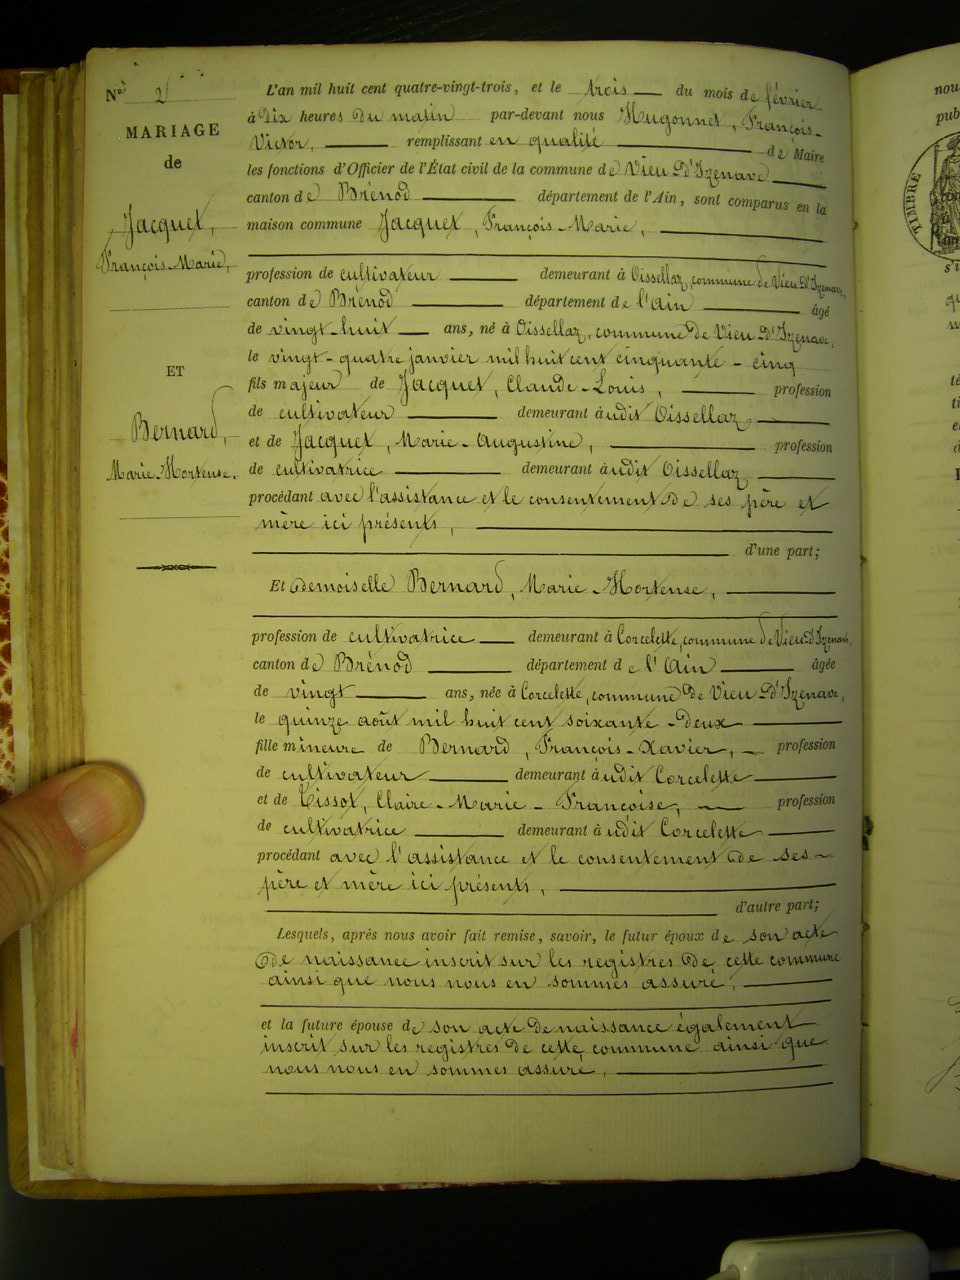 N° 2
MARIAGE
de
Jacquet,
François-Marie,
ET
Bernard,
Marie-Hortense.
L'an mil huit cent quatre-vingt-trois, et le trois du mois de février
à Dix heures du matin par-devant nous Hugonnet, François-
Victor, remplissant en qualité de Maire
les fonctions d'Officier de l'État civil de la commune de Vieu-d'Izenave
canton de Brénod département de l'Ain, sont comparus en la
maison commune Jacquet, François-Marie,
profession de cultivateur demeurant à Oissellaz, commune de Vieu-d'Izenave,
canton de Brénod département de l'Ain âgé
de vingt-huit ans, né à Oissellaz, commune de Vieu-d'Izenave,
le vingt-quatre janvier mil huit cent cinquante-cinq
fils majeur de Jacquet, Claude-Louis, profession
de cultivateur demeurant à udit Oissellaz
et de Jacquet, Marie-Augustine, profession
de cultivatrice demeurant à udit Oissellaz
procédant avec l'assistance et le consentement de ses père et
mère ici présents,
d'une part;
Et Demoiselle Bernard, Marie-Hortense,
profession de cultivatrice demeurant à Corcelette, commune de Vieu-d'Izenave,
canton de Brénod département de l'Ain âgée
de vingt ans, née à Corcelette, commune de Vieu-d'Izenave,
le quinze août mil huit cent soixante-deux
fille mineure de Bernard, François-Xavier, profession
de cultivateur demeurant à udit Corcelette
et de Tissot, Claire-Marie-Françoise, profession
de cultivatrice demeurant à udit Corcelette
procédant avec l'assistance et le consentement de ses
père et mère ici présents,
d'autre part;
Lesquels, après nous avoir fait remise, savoir, le futur époux de son acte
de naissance inscrit sur les registres de cette commune
ainsi que nous nous en sommes assuré,
et la future épouse de son acte de naissance également
inscrit sur les registres de cette commune ainsi que
nous nous en sommes assuré,
nou
pub
TIMBRE
s'i